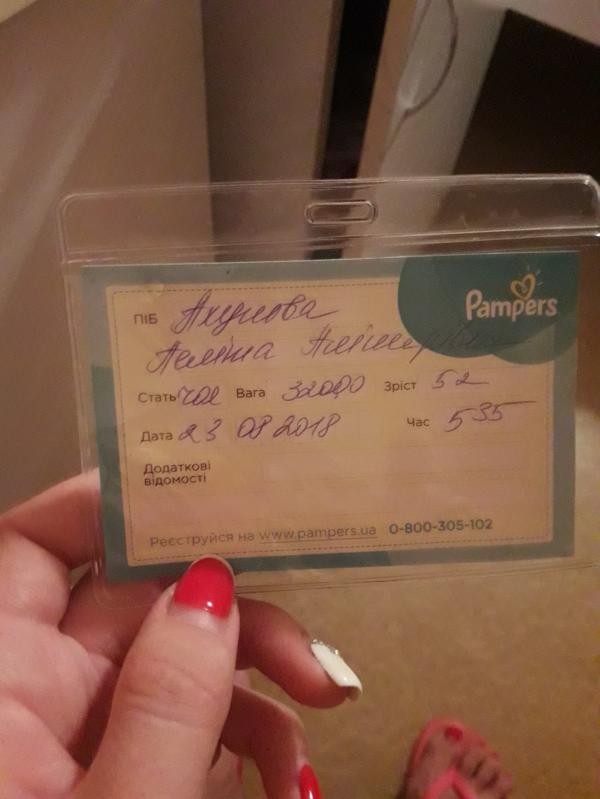 Pampers
ПІБ Ахунова
Аліна
Стать чол Вага 3200 Зріст 52
Дата 23 08 2018 Час 5 35
Додаткові
відомості
Реєструйся на www.pampers.ua 0-800-305-102